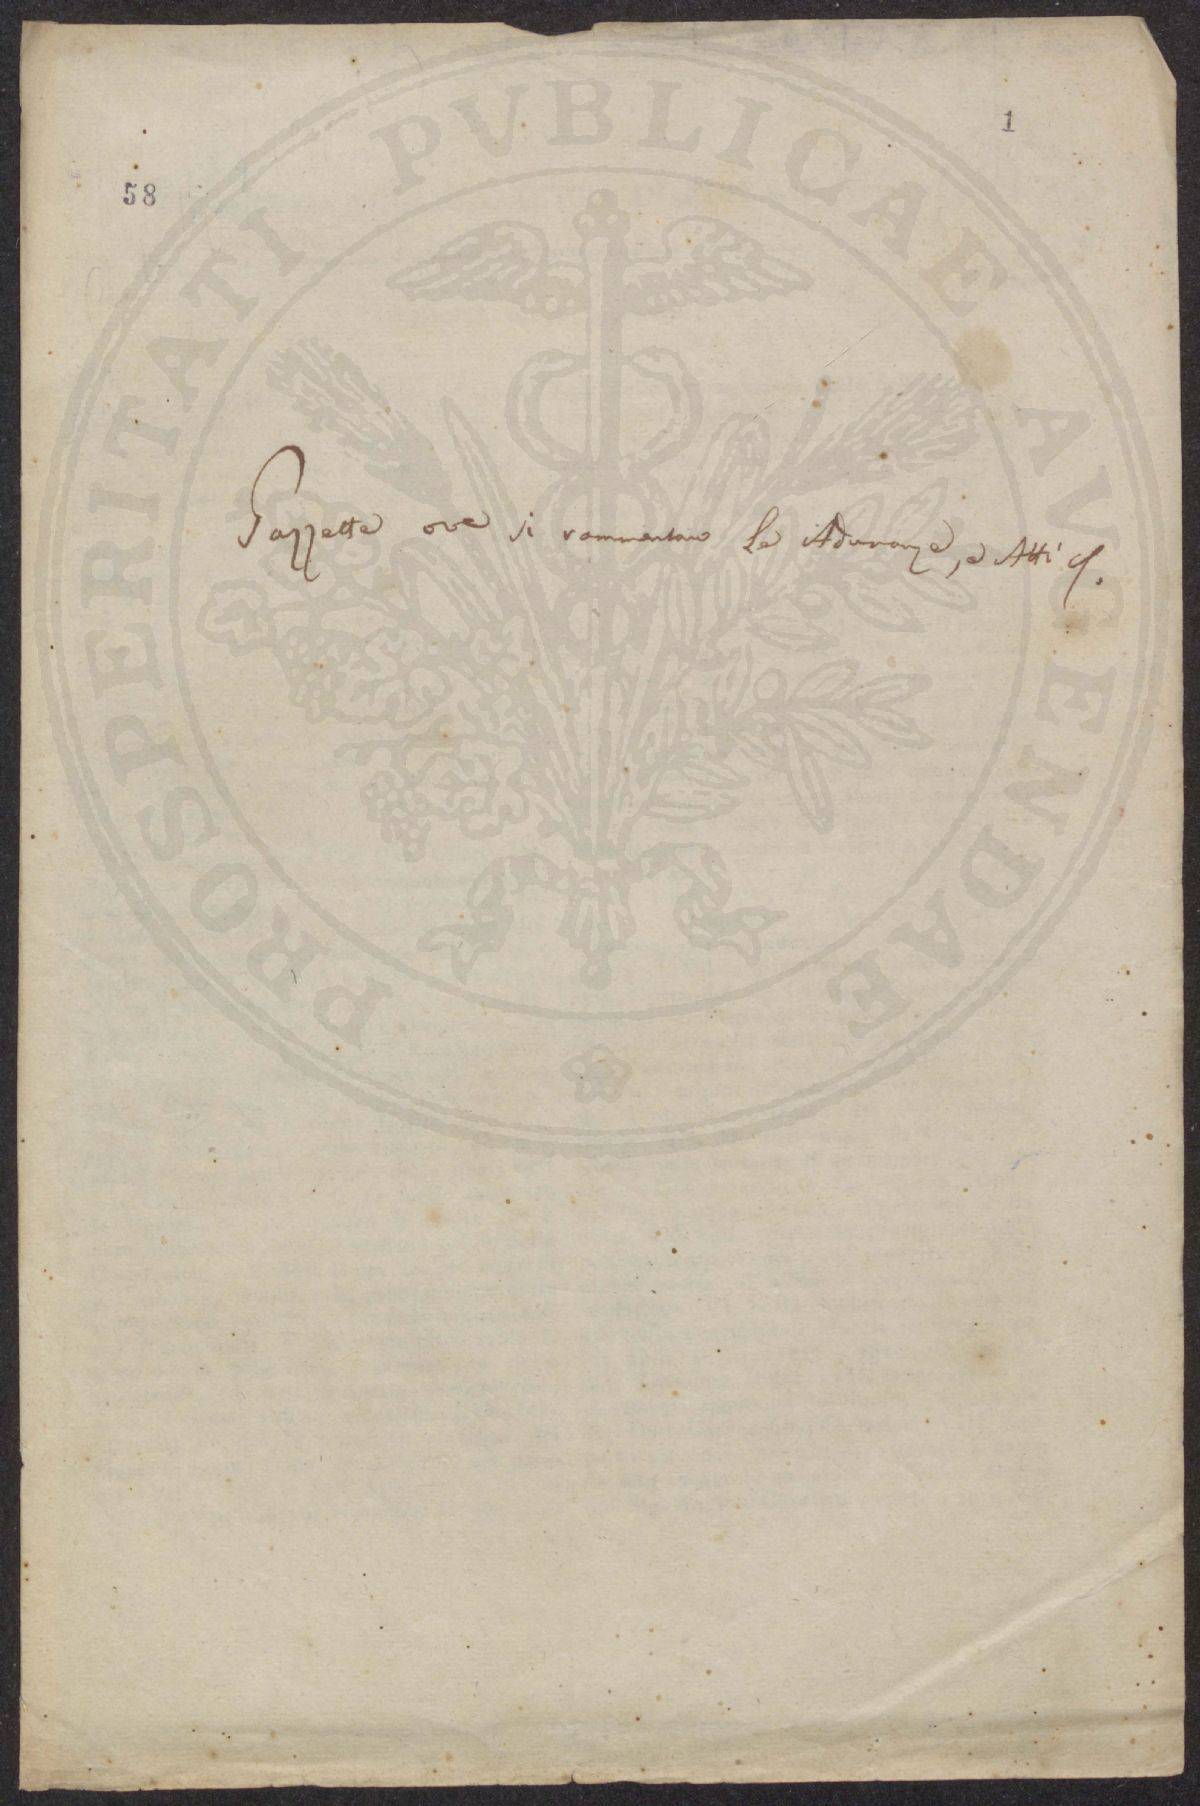 1
58
PROSPERITATI PVBLICAE AVGENDAE
Gazzette ove si rammentano Le Adunanze, e Atti &.